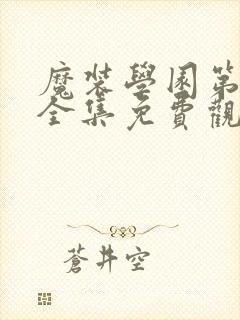 魔裝學園第
全集免費觀
蒼井空